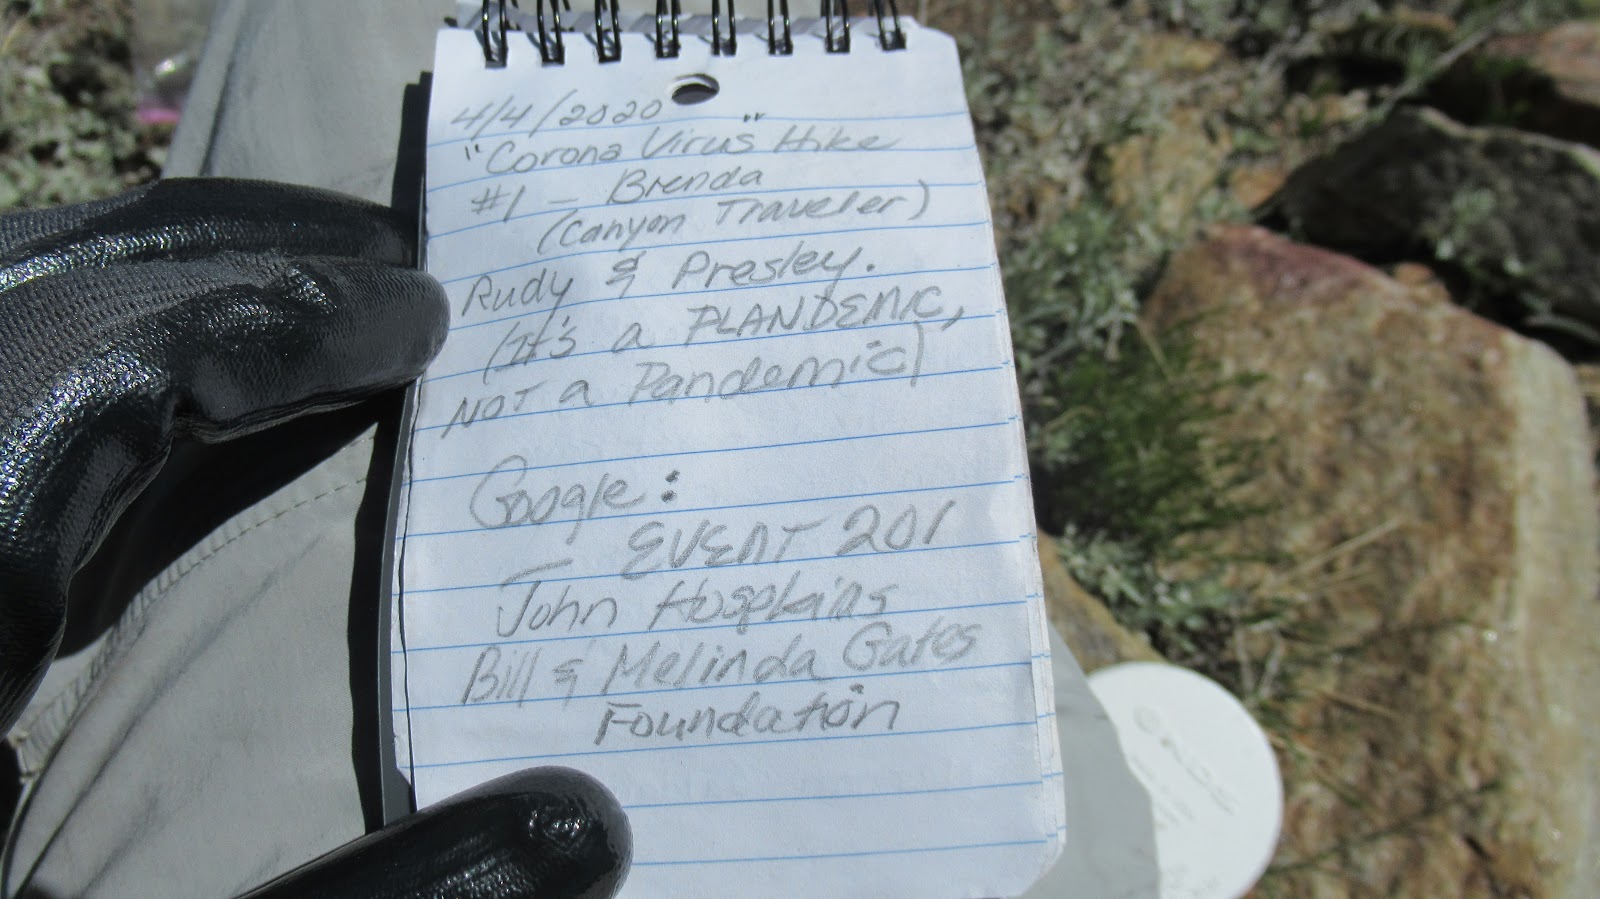 4/4/2020
"Corona Virus" Hike
#1 - Brenda
(Canyon Traveler)
Rudy & Presley.
(It's a PLANDEMIC,
NOT a Pandemic)
Google:
EVENT 201
John Hospkins
Bill & Melinda Gates
Foundation